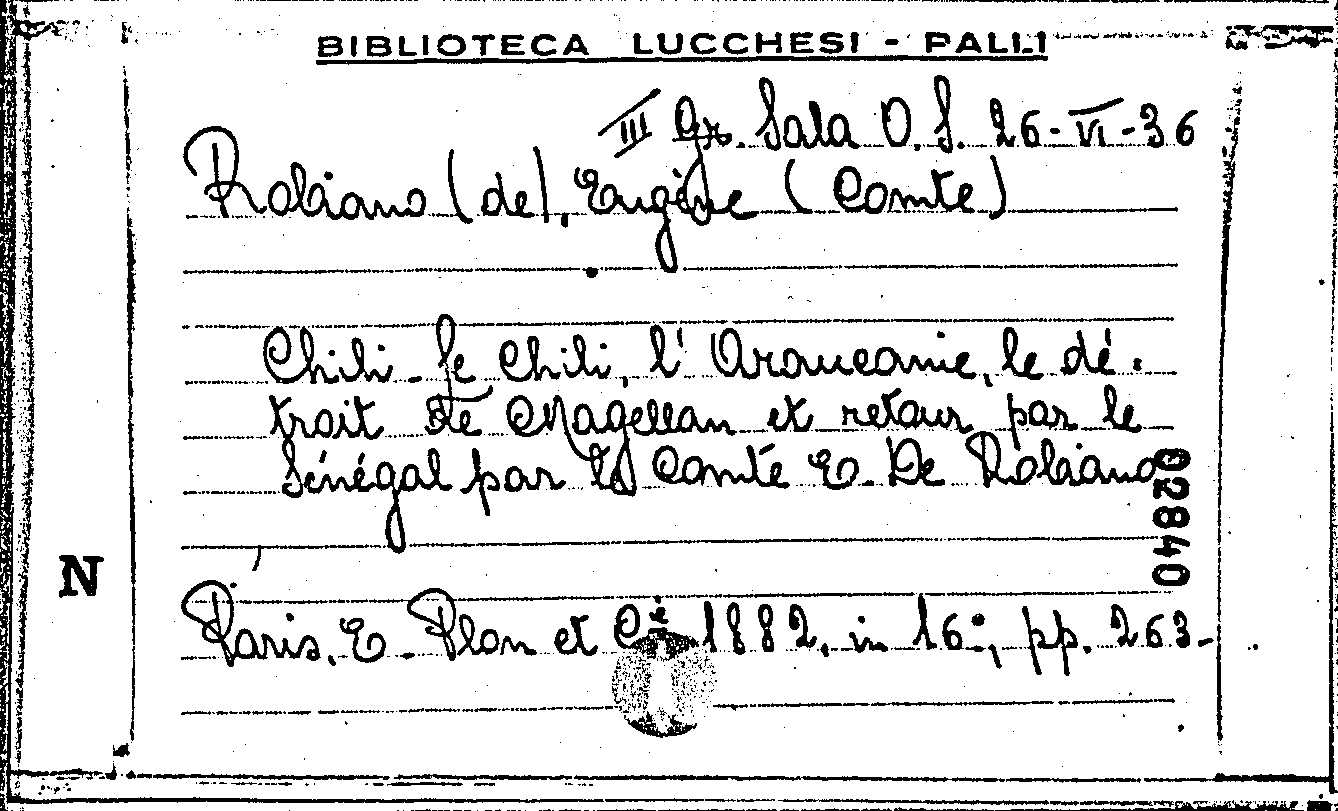 BIBLIOTECA LUCCHESI - PALLI
III Gr. Sala O. S. 26-VI-36
Robiano (de), Eugène (Comte)
Chili - Le Chili, l'Araucanie, le dé-
troit de Magellan et retour par le
Sénégal par le Comte E. De Robiano
02840
N
Paris, E. Plon et Cie 1882, in 16°, pp. 263-